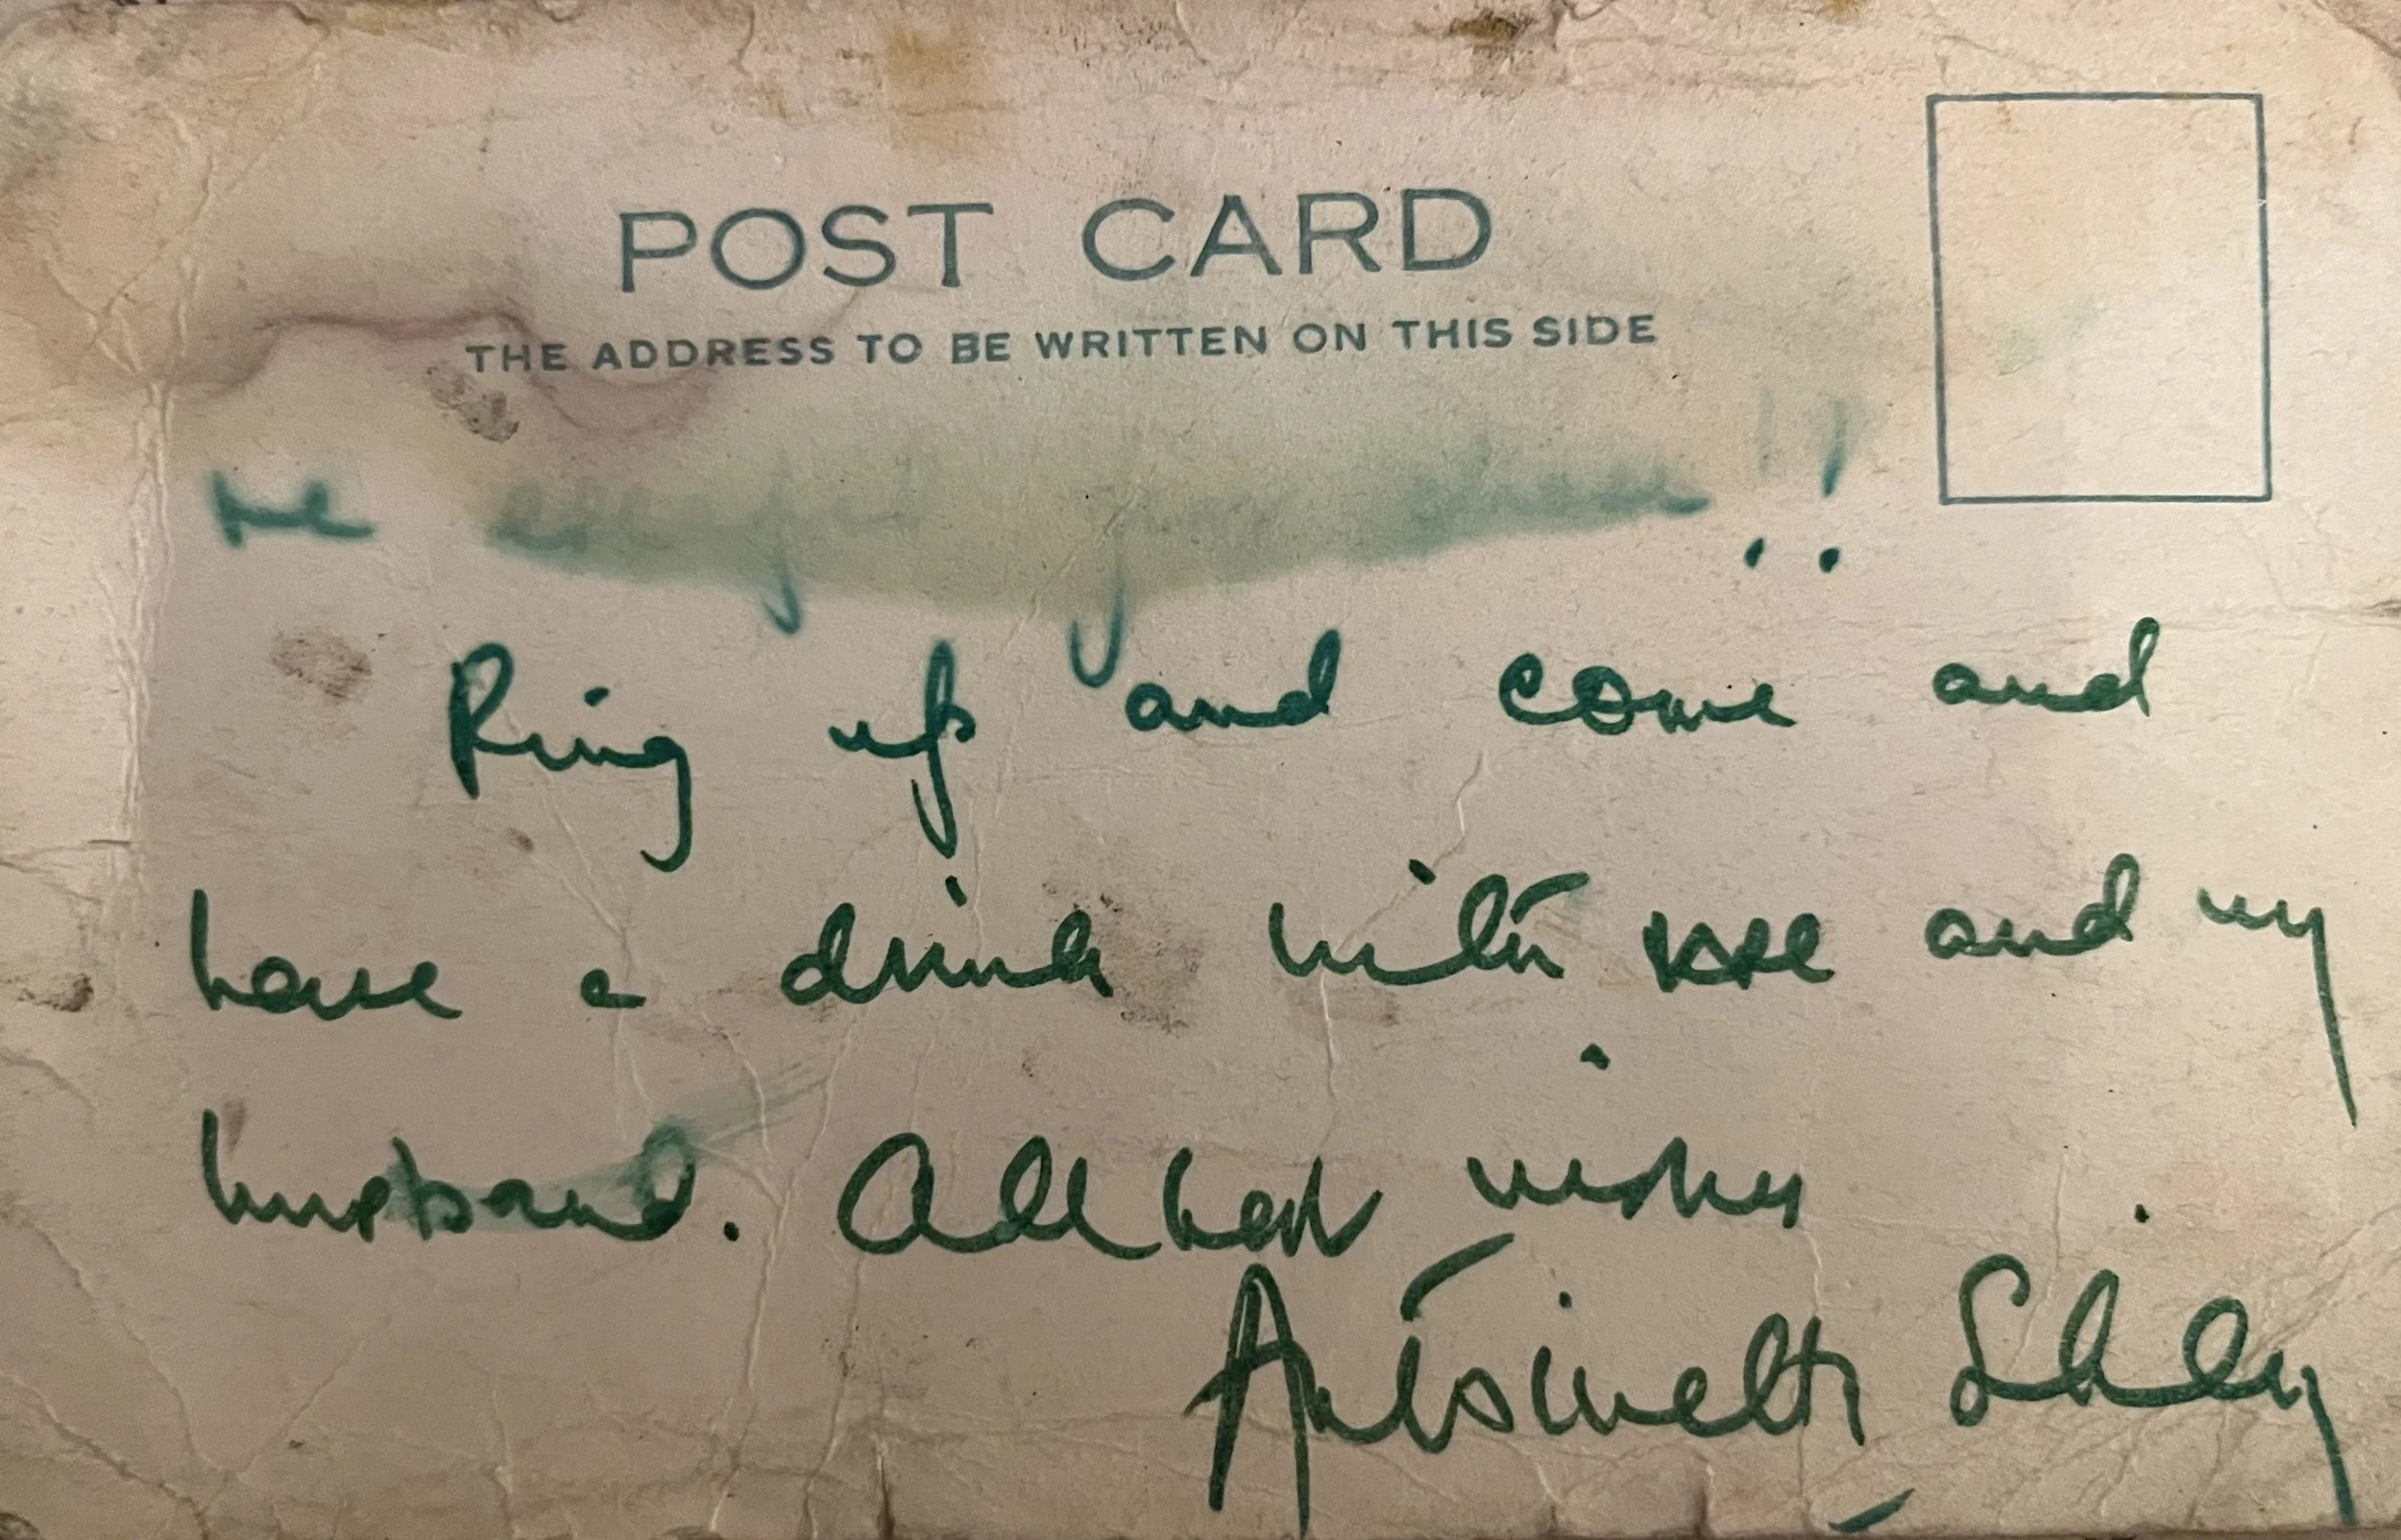 POST CARD
THE ADDRESS TO BE WRITTEN ON THIS SIDE
!!
Ring up and come and
have a drink with me and my
husband. All best wishes
Antoinette Sibley